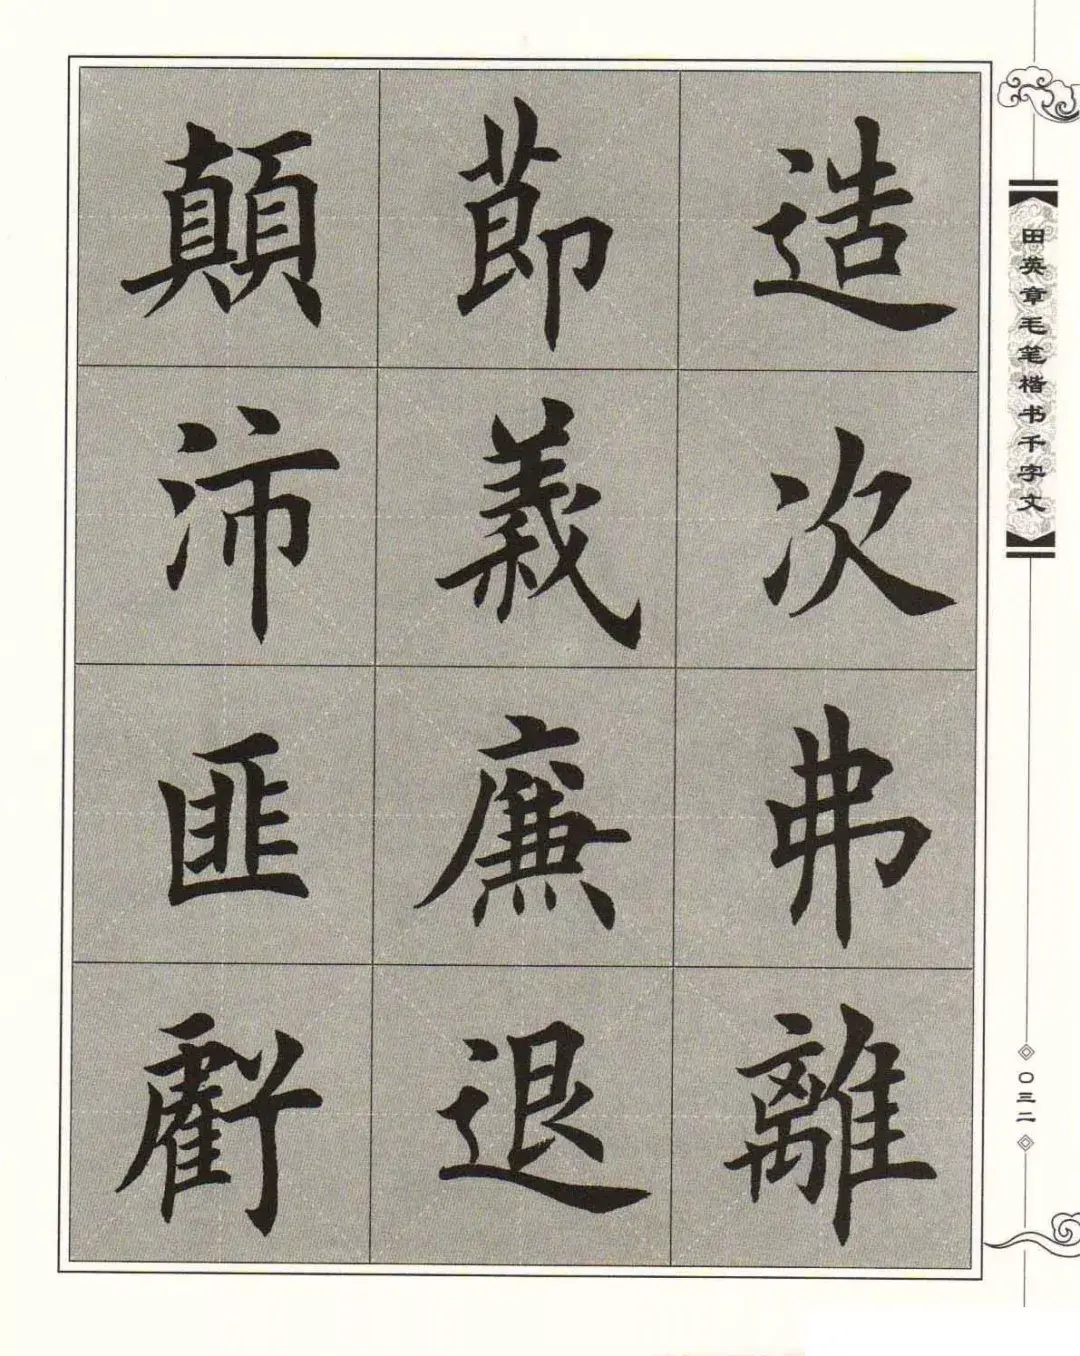 造次弗離
節義廉退
顛沛匪虧
田英章毛笔楷书千字文
〇三二